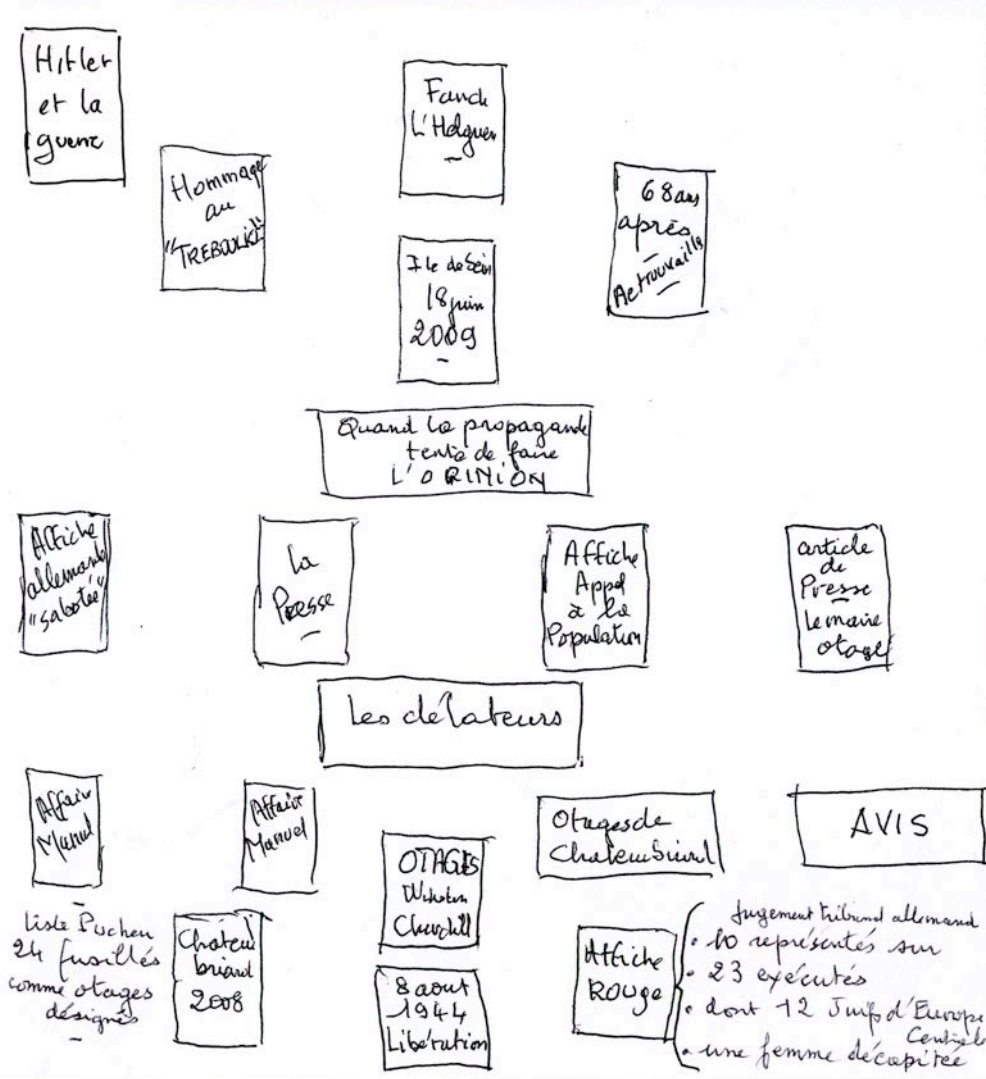 Hitler
et la
guerre
Hommage
au
"TREBOULIST"
Fanch
L'Helguen
68 ans
après
Retrouvailles
Ile de Sein
18 juin
2009
Quand la propagande
tente de faire
L'OPINION
Affiche
allemande
"sabotée"
La
Presse
Affiche
Appel
à la
Population
article
de
Presse
Le maire
otage
Les délateurs
Affaire
Manuel
Affaire
Manuel
OTAGES
Winston
Churchill
Otages de
Chateaubriand
AVIS
Liste Puchen
24 fusillés
comme otages
désignés
Chateau
briand
2008
8 aout
1944
Libération
Affiche
ROUGE
Jugement tribunal allemand
• 10 représentés sur
• 23 exécutés
• dont 12 Juifs d'Europe
Centrale
• une femme décapitée